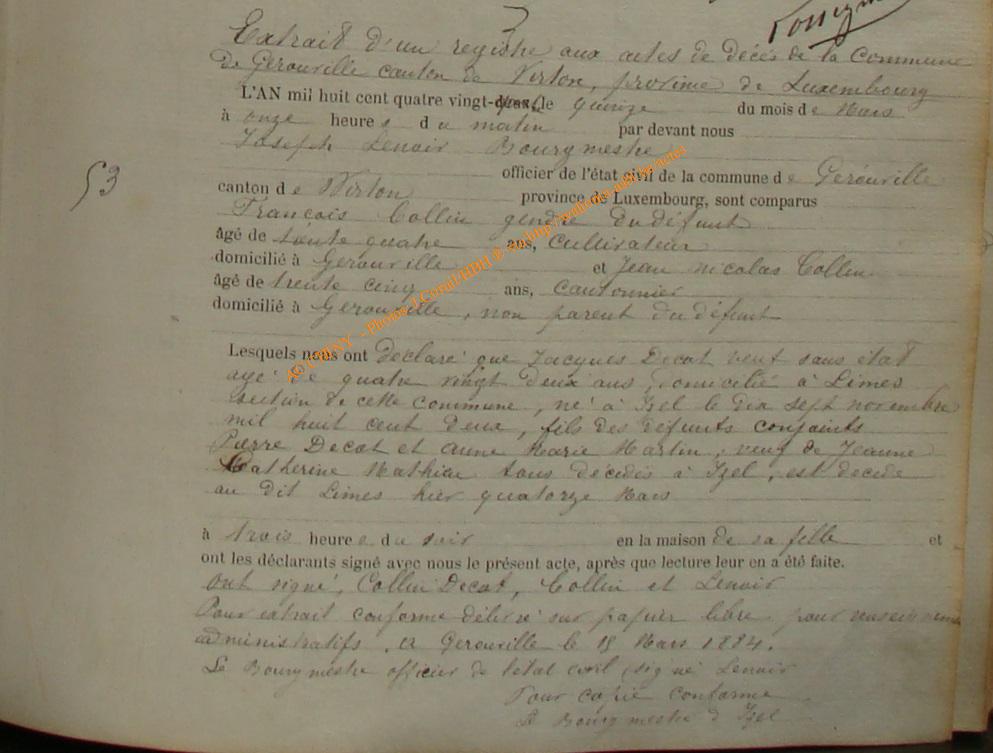 Extrait d'un registre aux actes de décès de la Commune
de Gerouville canton de Virton, province de Luxembourg
L'AN mil huit cent quatre vingt- le quinze du mois de Mars
à onze heures du matin par devant nous
Joseph Lenoir Bourgmestre
officier de l'état civil de la commune de Gerouville
53
canton de Virton province de Luxembourg, sont comparus
François Collin gendre du défunt
âgé de trente quatre ans, Cultivateur
domicilié à Gerouville et Jean nicolas Collin
âgé de trente cinq ans, cantonnier
domicilié à Gerouville, non parent du défunt
Lesquels nous ont déclaré que Jacques Decat veuf sans état
agé de quatre vingt deux ans, domicilié à Limes
section de cette commune, né à Izel le dix sept novembre
mil huit cent deux, fils des défunts conjoints
Pierre Decat et anne Marie Martin, veuf de Jeanne
Catherine Mathieu tous décédés à Izel, est décédé
au dit Limes hier quatorze Mars
à trois heures du soir en la maison de sa fille et
ont les déclarants signé avec nous le présent acte, après que lecture leur en a été faite.
Ont signé, Collin Decat, Collin et Lenoir
Pour extrait conforme délivré sur papier libre pour
administratifs. A Gerouville le 18 Mars 1884.
Le Bourgmestre officier de l'état civil (signé Lenoir
Pour copie conforme
Le Bourgmestre d'Izel